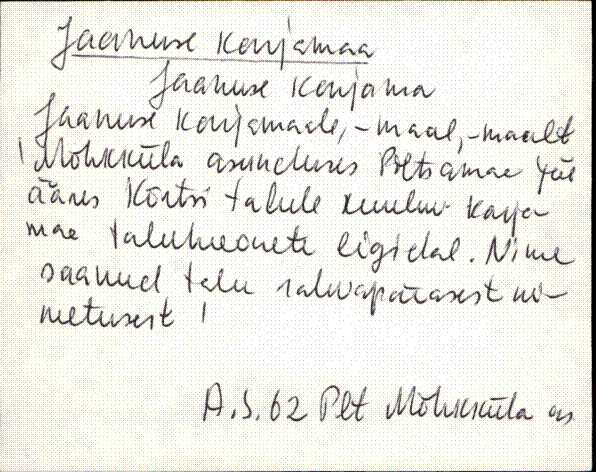 Jaanuse Karjamaa
Jaanuse Karjama
Jaanuse Karjamaale, -maal, -maalt
! Mõhkküla asunduses Põltsamaa jõe
ääres Kõrtsi talule kuuluv karja
maa taluhoonete ligidal. Nime
saanud talu rahvapärasest ni-
metusest !
A.S. 62 Plt Mõhkküla as